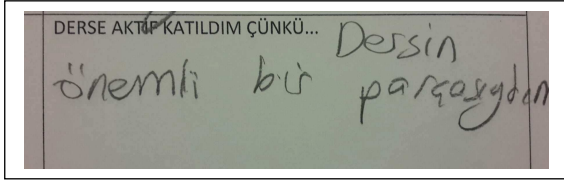 DERSE AKTİF KATILDIM ÇÜNKÜ... Dersin
önemli bir parçasıydım